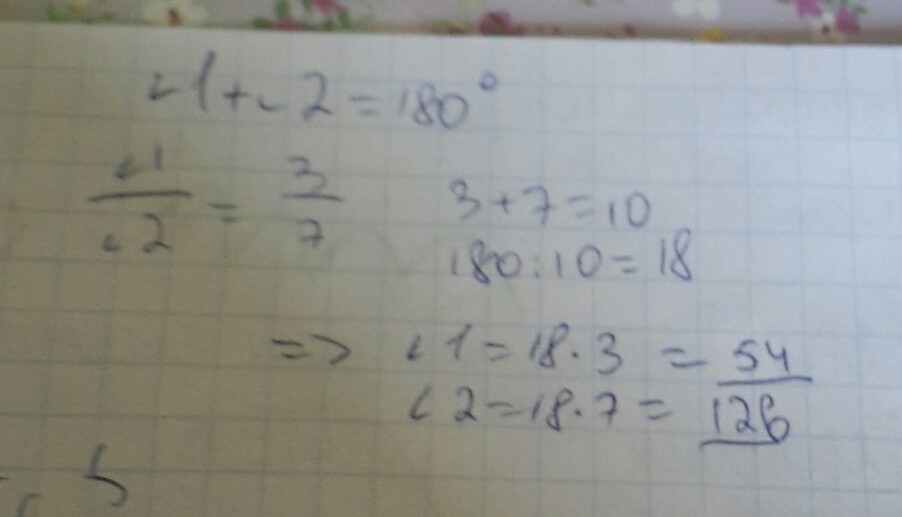 ∠1+∠2=180°
∠1/∠2 = 3/7
3+7=10
180:10=18
=> ∠1=18·3=54
∠2=18·7=126